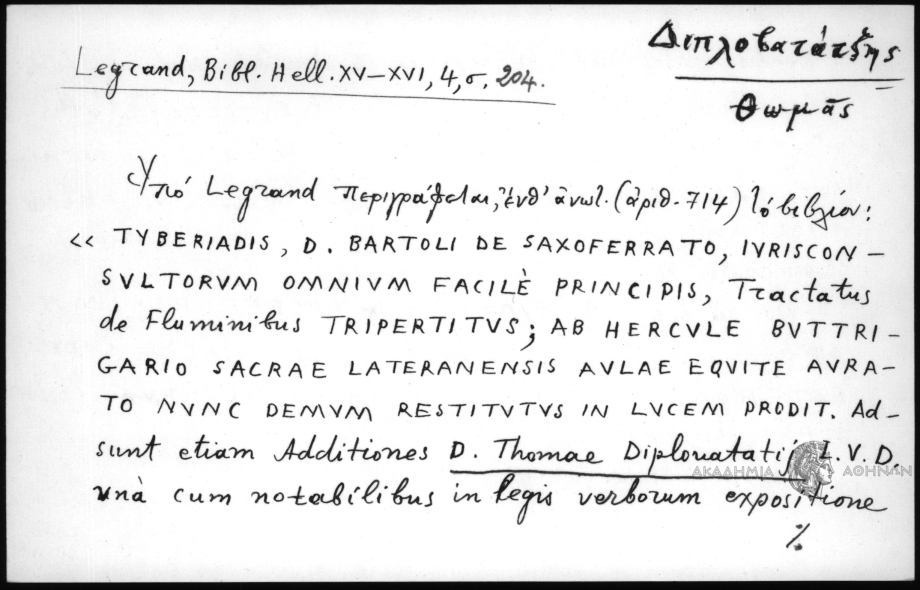 Διπλοβατάτζης
Θωμᾶς
Legrand, Bibl. Hell. XV–XVI, 4, σ. 204.
Ὑπό Legrand περιγράφεται, ἔνθ' ἀνωτ. (ἀριθ. 714) τό βιβλίον:
« TYBERIADIS, D. BARTOLI DE SAXOFERRATO, IVRISCON-
SVLTORVM OMNIVM FACILÈ PRINCIPIS, Tractatus
de Fluminibus TRIPERTITVS; AB HERCVLE BVTTRI-
GARIO SACRAE LATERANENSIS AVLAE EQVITE AVRA-
TO NVNC DEMVM RESTITVTVS IN LVCEM PRODIT. Ad-
sunt etiam Additiones D. Thomae Diplouatatij I.V.D.
vnà cum notabilibus in legis verborum expositione
%
ΑΚΑΔΗΜΙΑ ΑΘΗΝΩΝ